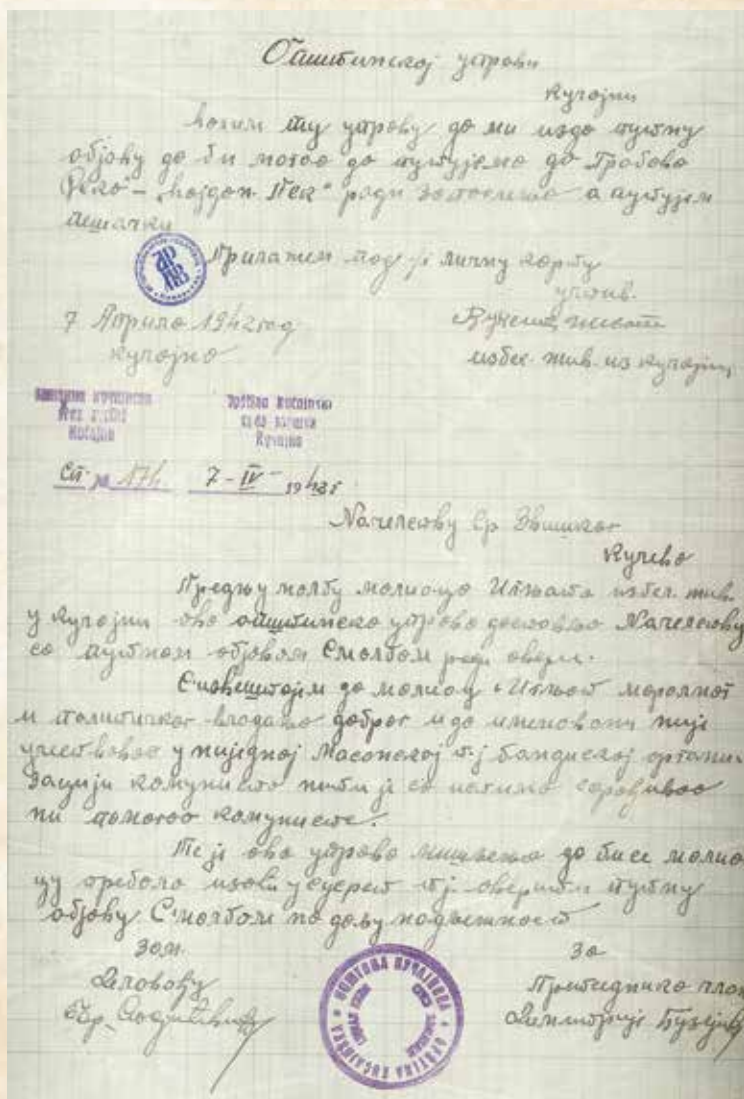 Општинској управи
Кучајни
Молим ту управу да ми изда путну
објаву да би могао да путујемо до Грабова
Река – „Мајдан Пек“ ради запослења а путујем
пешачки
Прилажем под ./. личну карту
7 Априла 1942 год
Кучајна
избег. жив. из Кучајне
Општина Кучајнска
Срез
Кучајна
Општина Кучајнска
Кучајна
Ст. № 174 7-IV- 1942 г
Начелству Ср Звишког
Кучево
Предњу молбу молиоца избег. жив.
у Кучајни ова општинска управа доставља Начелству
са путном објавом С молбом ради овере.
С извештајем да молиоц моралног
и политичког владања доброг и да именовани није
учествовао у ниједној Масонској т.ј. бандиској органи-
зацији комуниста нити је са истима сарађивао
ни помогао комунисте.
Те је ова управа мишљења да би се молио-
цу требало изаћи у сусрет т.ј. оверити путну
објаву С молбом на даљу надлежност
Зам.
Деловођу
За
Претседника
Димитрије